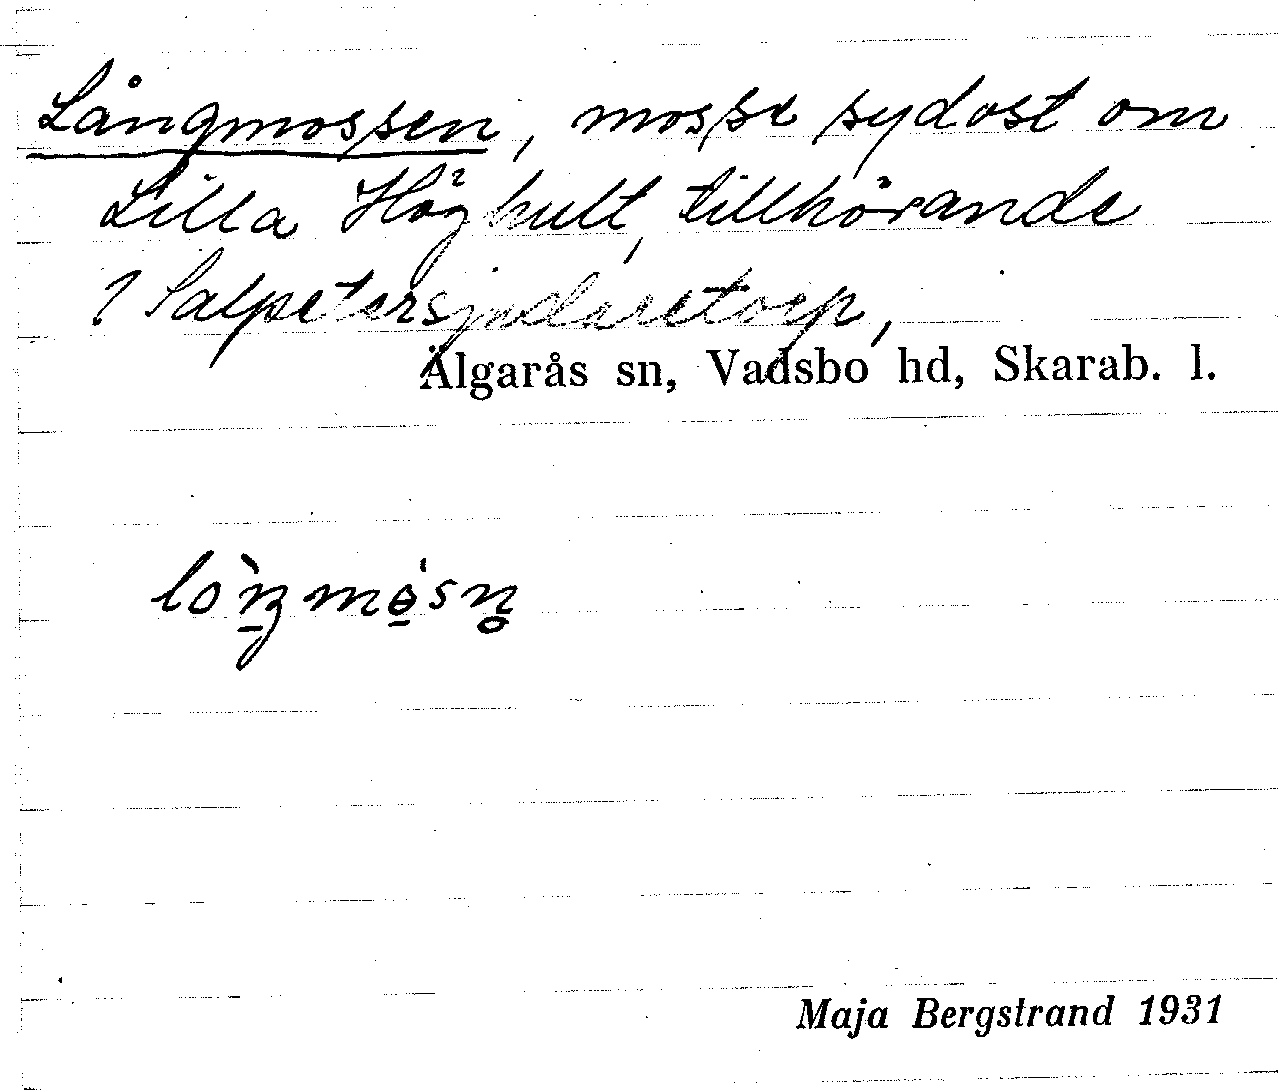 Långmossen, mosse sydost om
Lilla Höghult, tillhörande
? Salpetersjudaretorp,
Älgarås sn, Vadsbo hd, Skarab. l.
Maja Bergstrand 1931